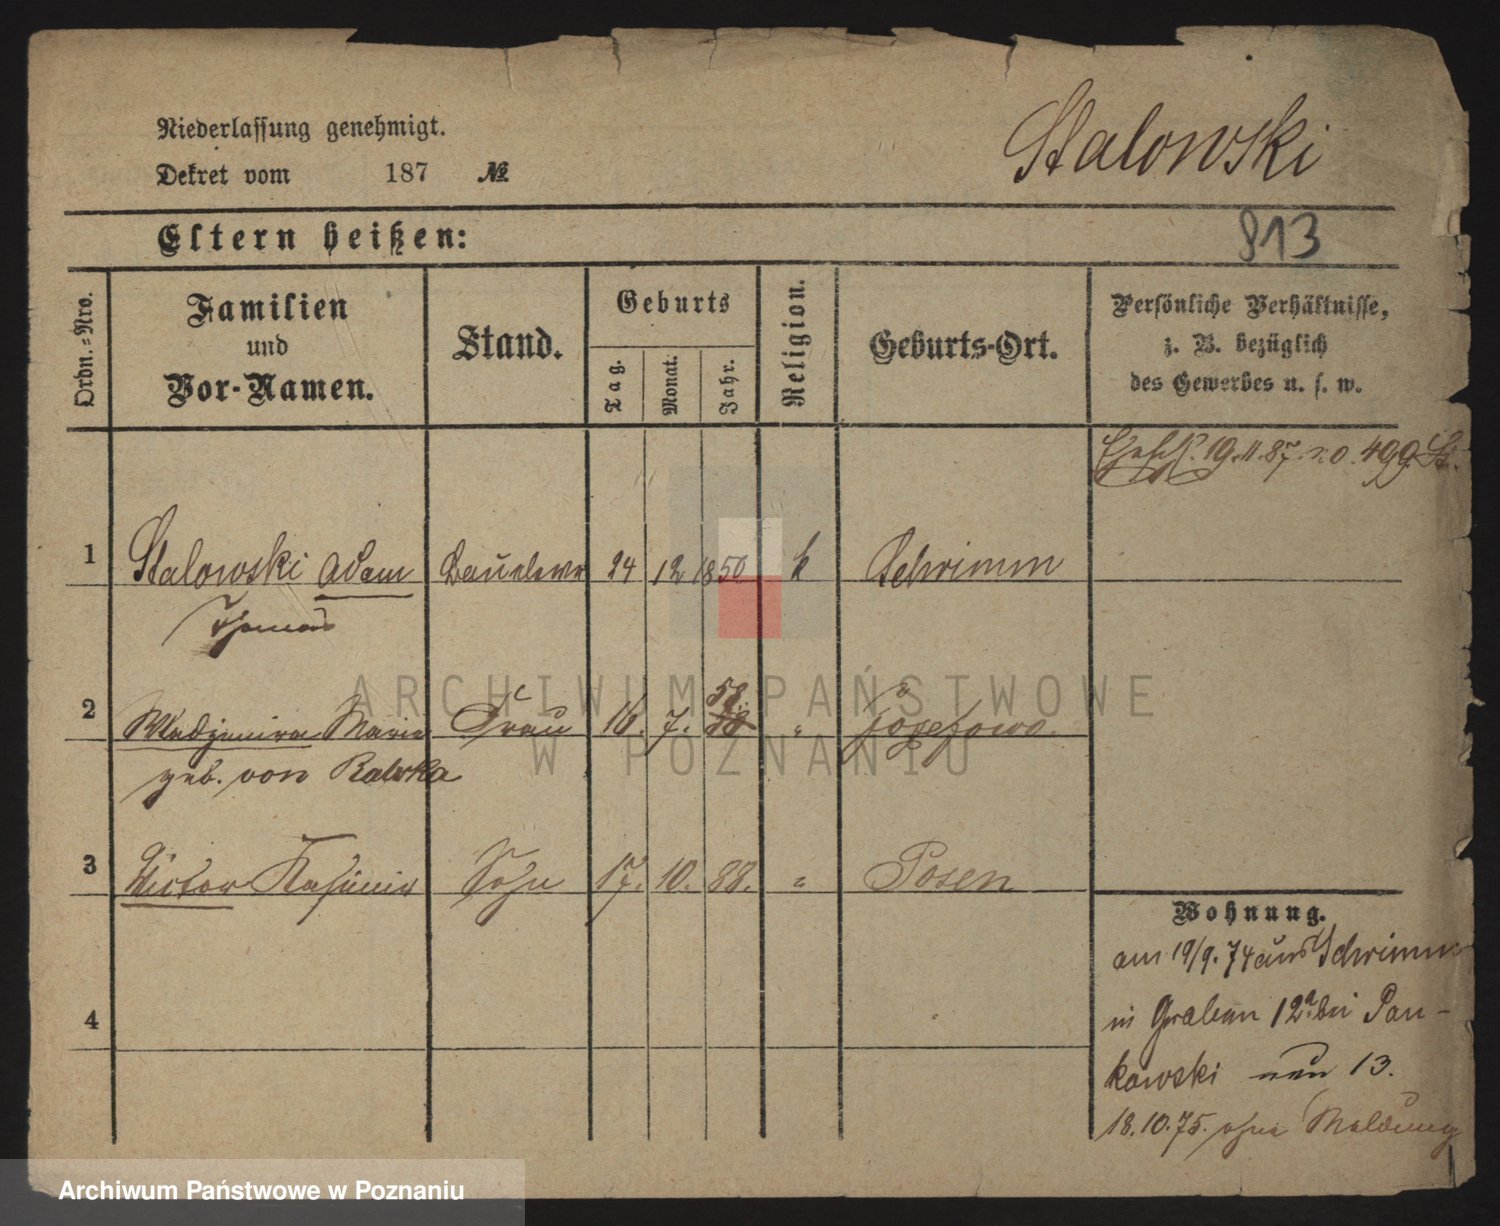 Niederlassung genehmigt.
Dekret vom 187 №
Stalowski
Eltern heißen:
813
Ordn.=Nro.
Familien
und
Vor-Namen.
Stand.
Geburts
Tag.
Monat.
Jahr.
Religion.
Geburts-Ort.
Persönliche Verhältnisse,
z. B. bezüglich
des Gewerbes u. s. w.
19.11.87. no. 499
1 Stalowski Adam Baueleve 24 12 1850 k Schrimm
Thomas
2 Wladzimira Marie Frau 16. 7. 58. " Józefowo.
geb. von Ralska
3 Victor Kasimir Sohn 17. 10. 88. " Posen
4
Wohnung.
am 19/9. 74 aus Schrimm
in Graben 12a. bei Pan-
kowski neu 13.
18.10.75. ohne Meldung
ARCHIWUM PAŃSTWOWE
W POZNANIU
Archiwum Państwowe w Poznaniu